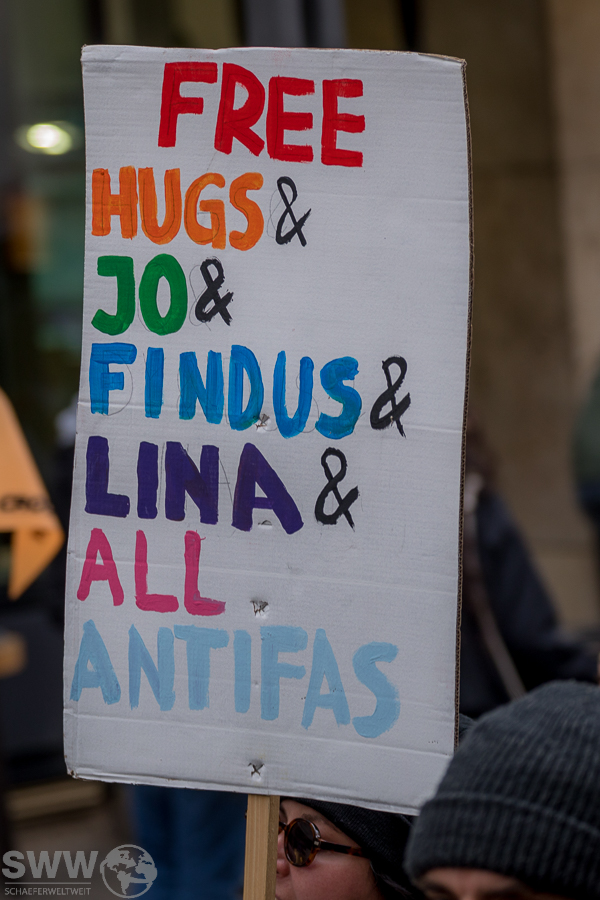 FREE
HUGS &
JO &
FINDUS &
LINA &
ALL
ANTIFAS
SWW
SCHAEFERWELTWEIT